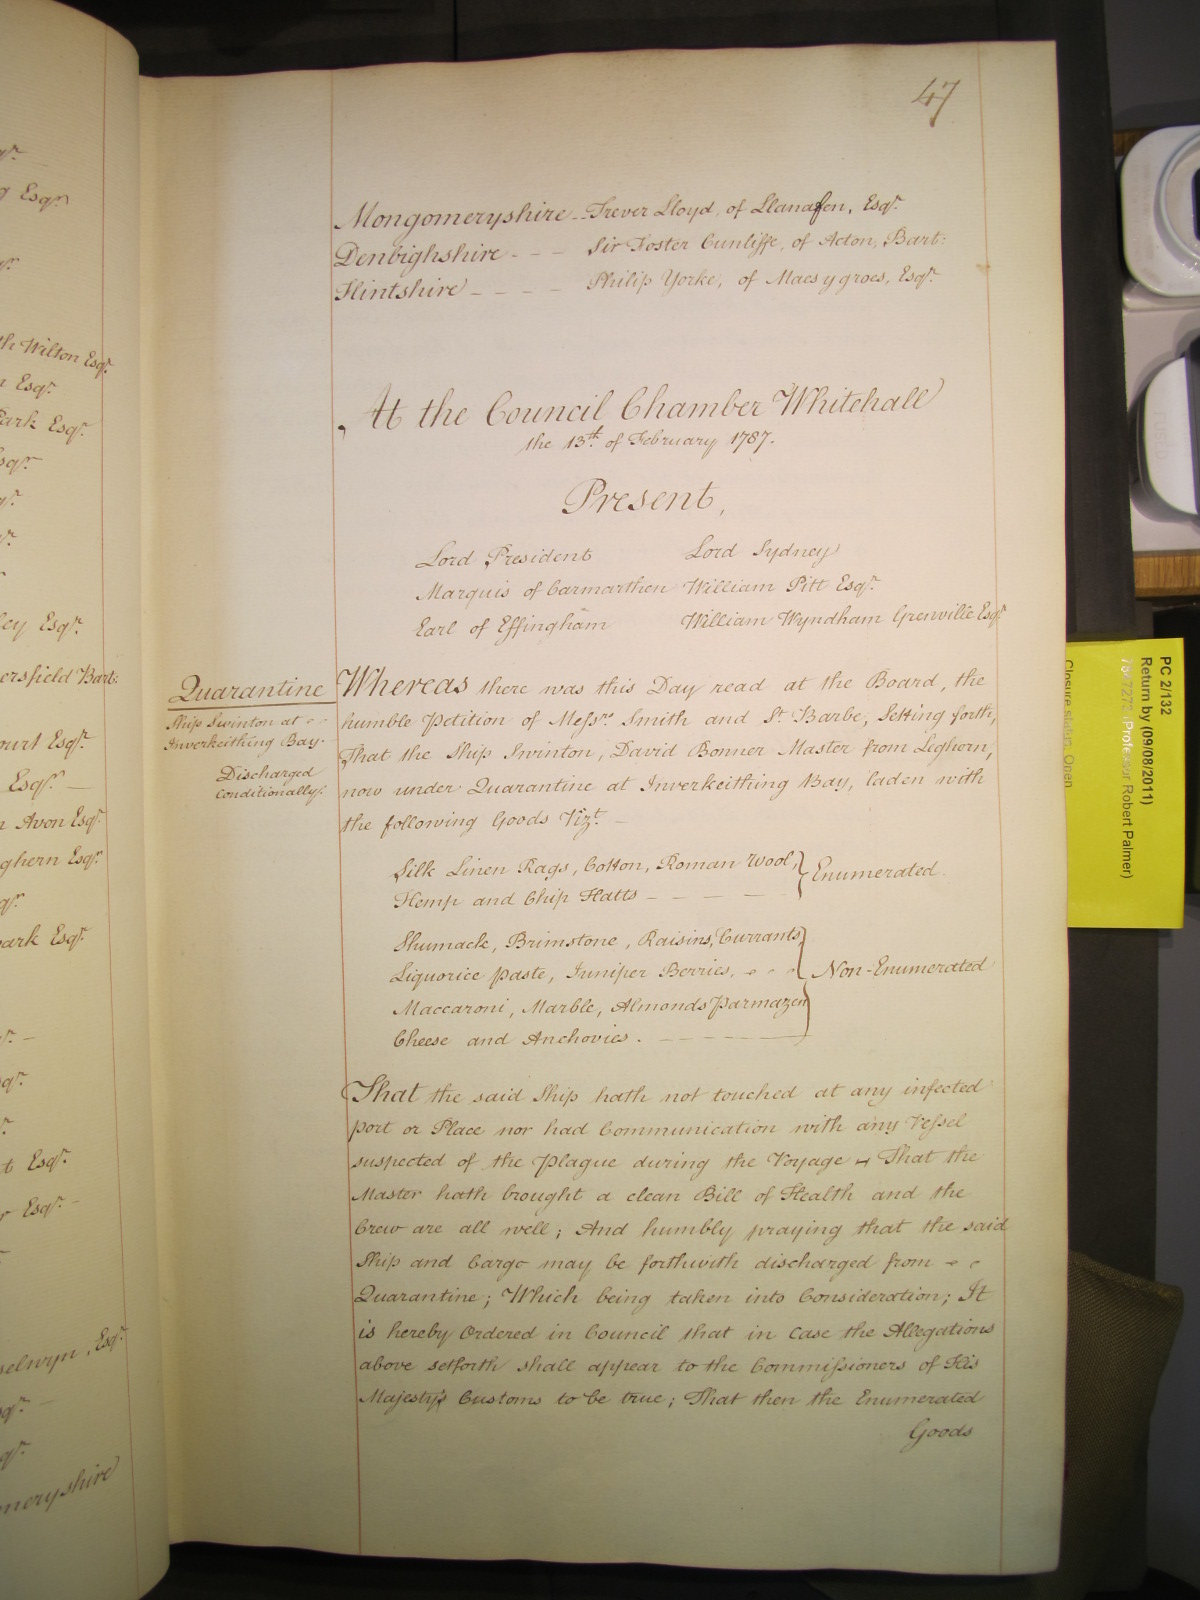 47
Mongomeryshire -- Trever Lloyd, of Llanafen, Esqr.
Denbighshire - - - Sir Foster Cunliffe, of Acton, Bart:
Flintshire - - - - Philip Yorke, of Maes y groes, Esqr.
At the Council Chamber Whitehall
the 13th. of February 1787.
Present,
Lord President Lord Sydney
Marquis of Carmarthen William Pitt Esqr.
Earl of Effingham William Wyndham Grenville Esqr.
Quarantine
Ship Swinton at
Inverkeithing Bay.
Discharged
conditionally.
Whereas there was this Day read at the Board, the
humble Petition of Messrs. Smith and St. Barbe, Setting forth,
That the Ship Swinton, David Bonner Master from Leghorn,
now under Quarantine at Inverkeithing Bay, laden with
the following Goods Vizt. -
Silk Linen Rags, Cotton, Roman Wool, } Enumerated.
Hemp and Chip Hatts - - - -
Shumack, Brimstone, Raisins, Currants,
Liquorice paste, Juniper Berries, } Non-Enumerated
Maccaroni, Marble, Almonds Parmazen
Cheese and Anchovies. - - - - -
That the said Ship hath not touched at any infected
port or Place nor had Communication with any Vessel
suspected of the Plague during the Voyage - That the
Master hath brought a clean Bill of Health and the
Crew are all well; And humbly praying that the said
Ship and Cargo may be forthwith discharged from
Quarantine; Which being taken into Consideration; It
is hereby Ordered in Council that in case the Allegations
above setforth shall appear to the Commissioners of His
Majesty's Customs to be true; That then the Enumerated
Goods
Esqr.
th Wilton Esqr.
Esqr.
ark Esqr.
ley Esqr.
ersfield Bart:
ourt Esqr.
Esqr. -
n Avon Esqr.
ghern Esqr.
park Esqr.
t Esqr.
r Esqr. -
selwyn, Esqr.
meryshire
PC 2/132
Return by (09/08/2011)
(Professor Robert Palmer)
Closure status: Open